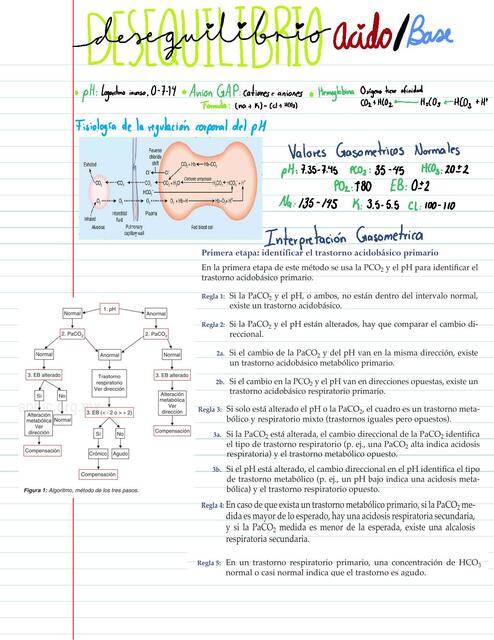 DESEQUILIBRIO
desequilibrio acido/Base
• pH: Logaritmo inverso, 0-7-14 • Anion GAP: cationes e aniones • Hemoglobina
Formula: (na + K) - (cl + HCO3)
Fisiología de la regulación corporal del pH
Exhaled
Inhaled
Alveolus
Interstitial fluid
Pulmonary capillary wall
Plasma
Favors chloride shift
Carbonic anhydrase
Red blood cell
Valores Gasometricos Normales
pH: 7.35-7.45 PCO2: 35-45 HCO3: 20±2
PO2: ↑80 EB: 0±2
Na: 135-145 K: 3.5-5.5 Cl: 100-110
Interpretación Gasometrica
Primera etapa: identificar el trastorno acidobásico primario
En la primera etapa de este método se usa la PCO2 y el pH para identificar el
trastorno acidobásico primario.
Regla 1: Si la PaCO2 y el pH, o ambos, no están dentro del intervalo normal,
existe un trastorno acidobásico.
Regla 2: Si la PaCO2 y el pH están alterados, hay que comparar el cambio di-
reccional.
2a. Si el cambio de la PaCO2 y del pH van en la misma dirección, existe
un trastorno acidobásico metabólico primario.
2b. Si el cambio en la PCO2 y el pH van en direcciones opuestas, existe un
trastorno acidobásico respiratorio primario.
Regla 3: Si solo está alterado el pH o la PaCO2, el cuadro es un trastorno meta-
bólico y respiratorio mixto (trastornos iguales pero opuestos).
3a. Si la PaCO2 está alterada, el cambio direccional de la PaCO2 identifica
el tipo de trastorno respiratorio (p. ej., una PaCO2 alta indica acidosis
respiratoria) y el trastorno metabólico opuesto.
3b. Si el pH está alterado, el cambio direccional en el pH identifica el tipo
de trastorno metabólico (p. ej., un pH bajo indica una acidosis meta-
bólica) y el trastorno respiratorio opuesto.
Regla 4: En caso de que exista un trastorno metabólico primario, si la PaCO2 me-
dida es mayor de lo esperado, hay una acidosis respiratoria secundaria,
y si la PaCO2 medida es menor de la esperada, existe una alcalosis
respiratoria secundaria.
Regla 5: En un trastorno respiratorio primario, una concentración de HCO3
normal o casi normal indica que el trastorno es agudo.
1. pH
Normal
Anormal
2. PaCO2
2. PaCO2
Normal
Anormal
Normal
3. EB alterado
Trastorno respiratorio Ver dirección
3. EB alterado
Sí
No
Alteración metabólica Ver dirección
Normal
3. EB (< - 2 o > + 2)
Alteración metabólica Ver dirección
Sí
No
Compensación
Crónico
Agudo
Compensación
Compensación
Figura 1: Algoritmo, método de los tres pasos.